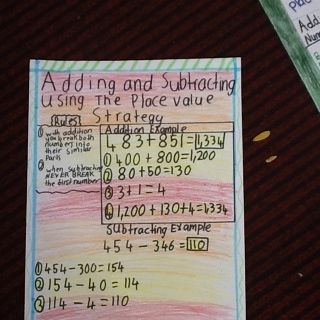 Adding and Subtracting
Using The Place value
Strategy
Rules
① with addition
you break both
numbers into
their similar
Parts
② when subtracting
NEVER BREAK
the first number
Addition Example
483+851=1,334
① 400+800=1,200
② 80+50=130
③ 3+1=4
④ 1,200+130+4=1,334
Subtracting Example
454-346=110
① 454-300=154
② 154-40=114
③ 114-4=110
Place
Add
Num